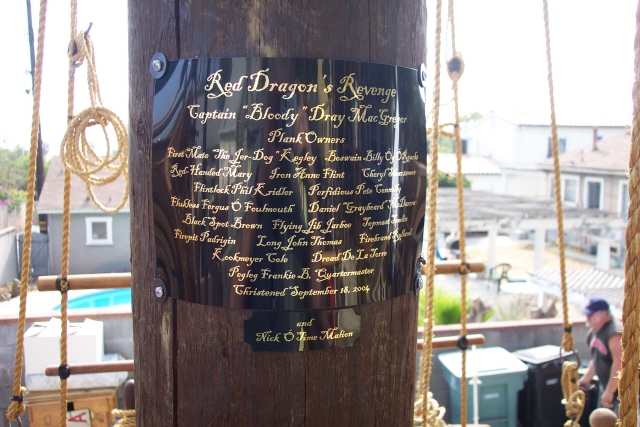 Red Dragon's Revenge
Captain "Bloody" Dray MacGregor
PlankOwners
First Mate "The Jer-Dog" Kegley Boswain Billy
Red Handed Mary Iron Anne Flint Cheryl
Flintlock Phil Kridler Perfidious Pete Connelly
Fergus O Foulmouth Daniel "Graybeard"
Black Spot Brown Flying Jib Jarboe Topmast
Firepit Padrigin Long John Thomas
Kookmeyer Cole Dread De La Torre
Pegleg Frankie B. Quartermaster
Christened September 18, 2004
and
Nick O Time Mation